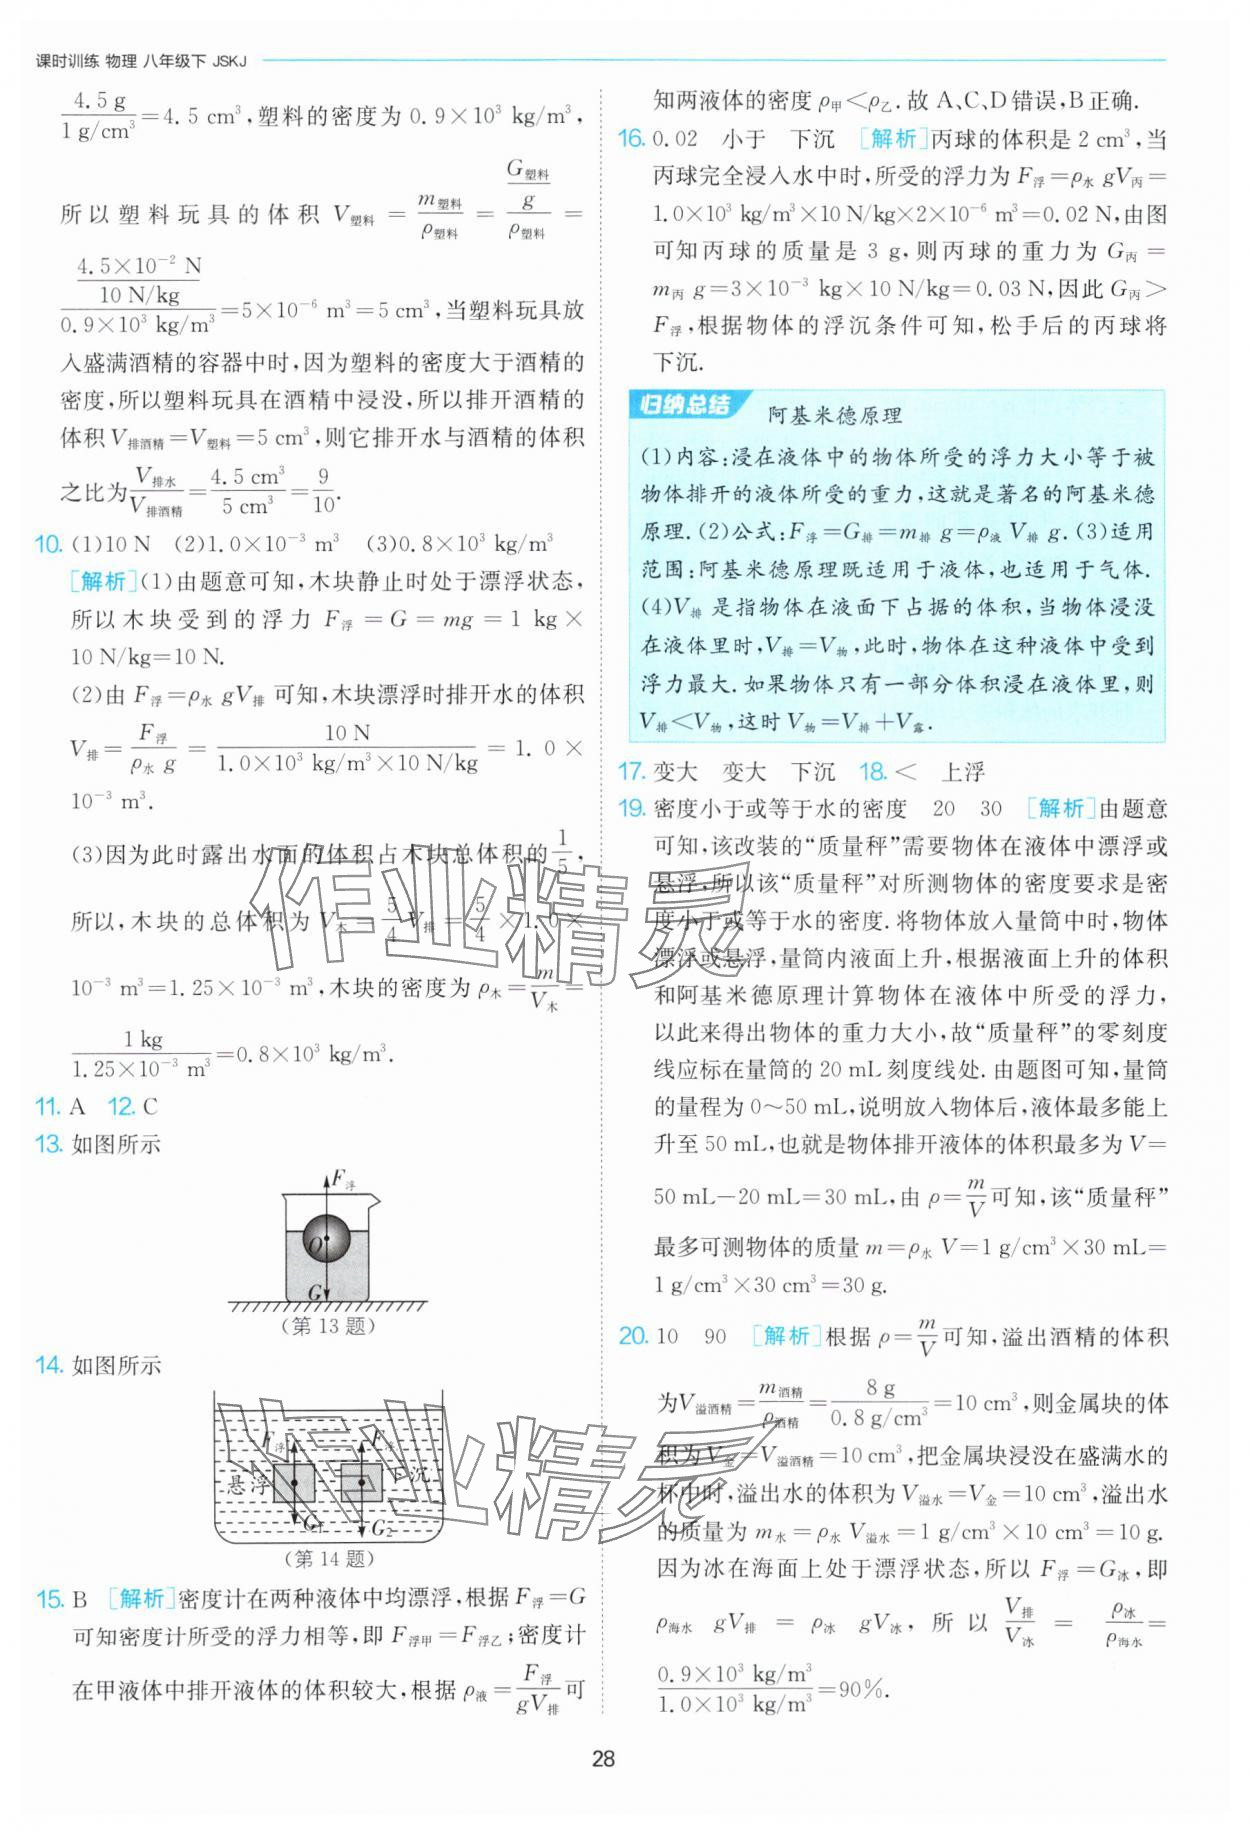 课时训练 物理 八年级下 JSKJ
4.5 g/1 g/cm³=4.5 cm³,塑料的密度为 0.9×10³ kg/m³,
所以塑料玩具的体积 V塑料 = m塑料/ρ塑料 = (G塑料/g)/ρ塑料 =
(4.5×10⁻² N/10 N/kg)/(0.9×10³ kg/m³)=5×10⁻⁶ m³=5 cm³,当塑料玩具放
入盛满酒精的容器中时,因为塑料的密度大于酒精的
密度,所以塑料玩具在酒精中浸没,所以排开酒精的
体积V排酒精=V塑料=5 cm³,则它排开水与酒精的体积
之比为V排水/V排酒精=4.5 cm³/5 cm³=9/10.
10. (1)10 N (2)1.0×10⁻³ m³ (3)0.8×10³ kg/m³
[解析](1)由题意可知,木块静止时处于漂浮状态,
所以木块受到的浮力 F浮=G=mg=1 kg×
10 N/kg=10 N.
(2)由 F浮=ρ水 gV排 可知,木块漂浮时排开水的体积
V排=F浮/ρ水 g=10 N/1.0×10³ kg/m³×10 N/kg=1.0×
10⁻³ m³.
(3)因为此时露出水面的体积占木块总体积的1/5,
所以,木块的总体积为 V木=5/4V排=5/4×1.0×
10⁻³ m³=1.25×10⁻³ m³,木块的密度为 ρ木=m/V木=
1 kg/1.25×10⁻³ m³=0.8×10³ kg/m³.
11. A 12. C
13. 如图所示
F浮
O
G
(第 13 题)
14. 如图所示
F浮 F浮
悬浮 下沉
G₁ G₂
(第 14 题)
15. B [解析]密度计在两种液体中均漂浮,根据 F浮=G
可知密度计所受的浮力相等,即 F浮甲=F浮乙;密度计
在甲液体中排开液体的体积较大,根据 ρ液=F浮/gV排可
知两液体的密度 ρ甲<ρ乙.故 A、C、D 错误,B 正确.
16. 0.02 小于 下沉 [解析]丙球的体积是 2 cm³,当
丙球完全浸入水中时,所受的浮力为 F浮=ρ水 gV丙=
1.0×10³ kg/m³×10 N/kg×2×10⁻⁶ m³=0.02 N,由图
可知丙球的质量是 3 g,则丙球的重力为 G丙=
m丙 g=3×10⁻³ kg×10 N/kg=0.03 N,因此 G丙>
F浮,根据物体的浮沉条件可知,松手后的丙球将
下沉.
归纳总结 阿基米德原理
(1)内容:浸在液体中的物体所受的浮力大小等于被
物体排开的液体所受的重力,这就是著名的阿基米德
原理.(2)公式:F浮=G排=m排 g=ρ液 V排 g.(3)适用
范围:阿基米德原理既适用于液体,也适用于气体.
(4)V排 是指物体在液面下占据的体积,当物体浸没
在液体里时,V排=V物,此时,物体在这种液体中受到
浮力最大.如果物体只有一部分体积浸在液体里,则
V排<V物,这时 V物=V排+V露.
17. 变大 变大 下沉 18. < 上浮
19. 密度小于或等于水的密度 20 30 [解析]由题意
可知,该改装的“质量秤”需要物体在液体中漂浮或
悬浮,所以该“质量秤”对所测物体的密度要求是密
度小于或等于水的密度.将物体放入量筒中时,物体
漂浮或悬浮,量筒内液面上升,根据液面上升的体积
和阿基米德原理计算物体在液体中所受的浮力,
以此来得出物体的重力大小,故“质量秤”的零刻度
线应标在量筒的 20 mL 刻度线处.由题图可知,量筒
的量程为 0~50 mL,说明放入物体后,液体最多能上
升至 50 mL,也就是物体排开液体的体积最多为 V=
50 mL-20 mL=30 mL,由 ρ=m/V可知,该“质量秤”
最多可测物体的质量 m=ρ水 V=1 g/cm³×30 mL=
1 g/cm³×30 cm³=30 g.
20. 10 90 [解析]根据 ρ=m/V可知,溢出酒精的体积
为V溢酒精=m酒精/ρ酒精=8 g/0.8 g/cm³=10 cm³,则金属块的体
积为V金=V溢酒精=10 cm³,把金属块浸没在盛满水的
杯中时,溢出水的体积为 V溢水=V金=10 cm³,溢出水
的质量为 m水=ρ水 V溢水=1 g/cm³×10 cm³=10 g.
因为冰在海面上处于漂浮状态,所以 F浮=G冰,即
ρ海水 gV排 = ρ冰 gV冰,所以 V排/V冰 = ρ冰/ρ海水=
0.9×10³ kg/m³/1.0×10³ kg/m³=90%.
作业精灵
作业精灵
28